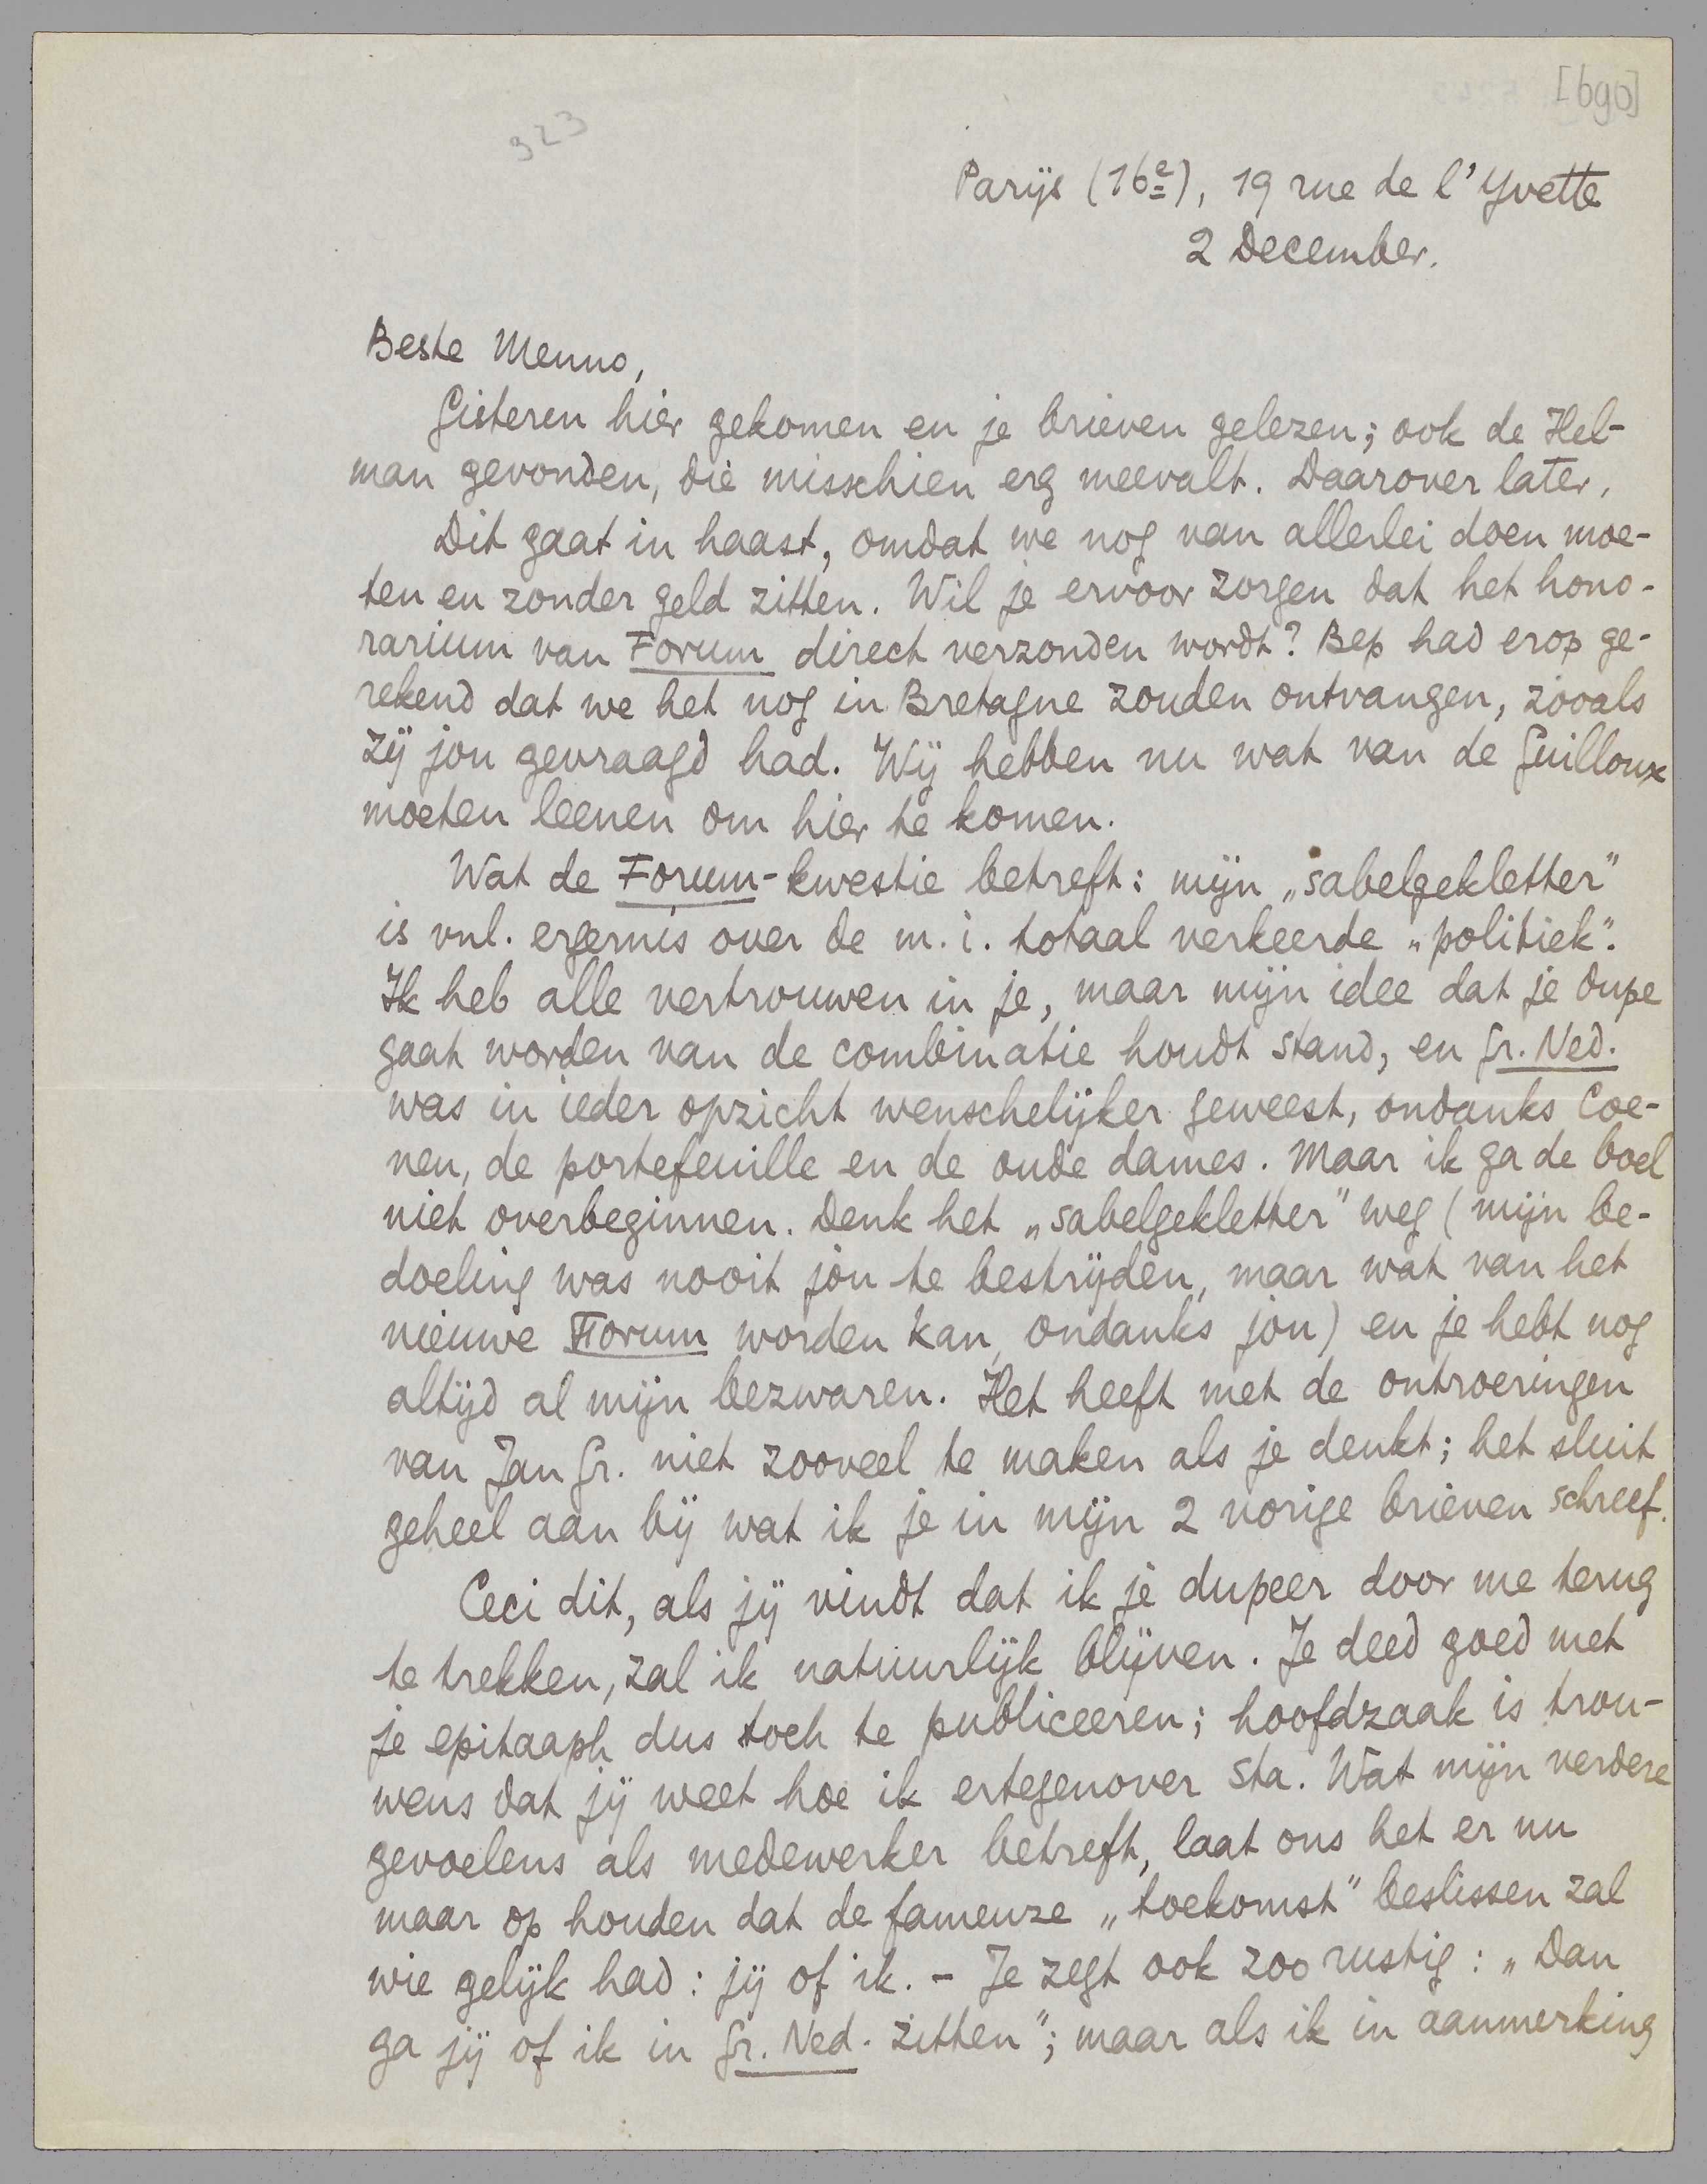 [690]
923
Parijs (16e), 19 rue de l'Yvette
2 December.
Beste Menno,
Gisteren hier gekomen en je brieven gelezen; ook de Hel-
man gevonden, die misschien erg meevalt. Daarover later.
Dit gaat in haast, omdat we nog van allerlei doen moe-
ten en zonder geld zitten. Wil je ervoor zorgen dat het hono-
rarium van Forum direct verzonden wordt? Bep had erop ge-
rekend dat we het nog in Bretagne zouden ontvangen, zooals
zij jou gevraagd had. Wij hebben nu wat van de Guilloux
moeten leenen om hier te komen.
Wat de Forum-kwestie betreft: mijn „sabelgekletter"
is vnl. ergernis over de m.i. totaal verkeerde „politiek".
Ik heb alle vertrouwen in je, maar mijn idee dat je dupe
gaat worden van de combinatie houdt stand, en Gr. Ned.
was in ieder opzicht wenschelijker geweest, ondanks Coe-
nen, de portefeuille en de oude dames. Maar ik ga de boel
niet overbeginnen. Denk het „sabelgekletter" weg (mijn be-
doeling was nooit jòu te bestrijden, maar wat van het
nieuwe Forum worden kan, ondanks jou) en je hebt nog
altijd al mijn bezwaren. Het heeft met de ontroeringen
van Jan Gr. niet zooveel te maken als je denkt; het sluit
geheel aan bij wat ik je in mijn 2 vorige brieven schreef.
Ceci dit, als jij vindt dat ik je dupeer door me terug
te trekken, zal ik natuurlijk blijven. Je deed goed met
je epitaaph dus toch te publiceeren; hoofdzaak is trou-
wens dat jij weet hoe ik ertegenover sta. Wat mijn verdere
gevoelens als medewerker betreft, laat ons het er nu
maar op houden dat de fameuze „toekomst" beslissen zal
wie gelijk had: jij of ik. - Je zegt ook zoo rustig: „Dan
ga jij of ik in Gr. Ned. zitten"; maar als ik in aanmerking